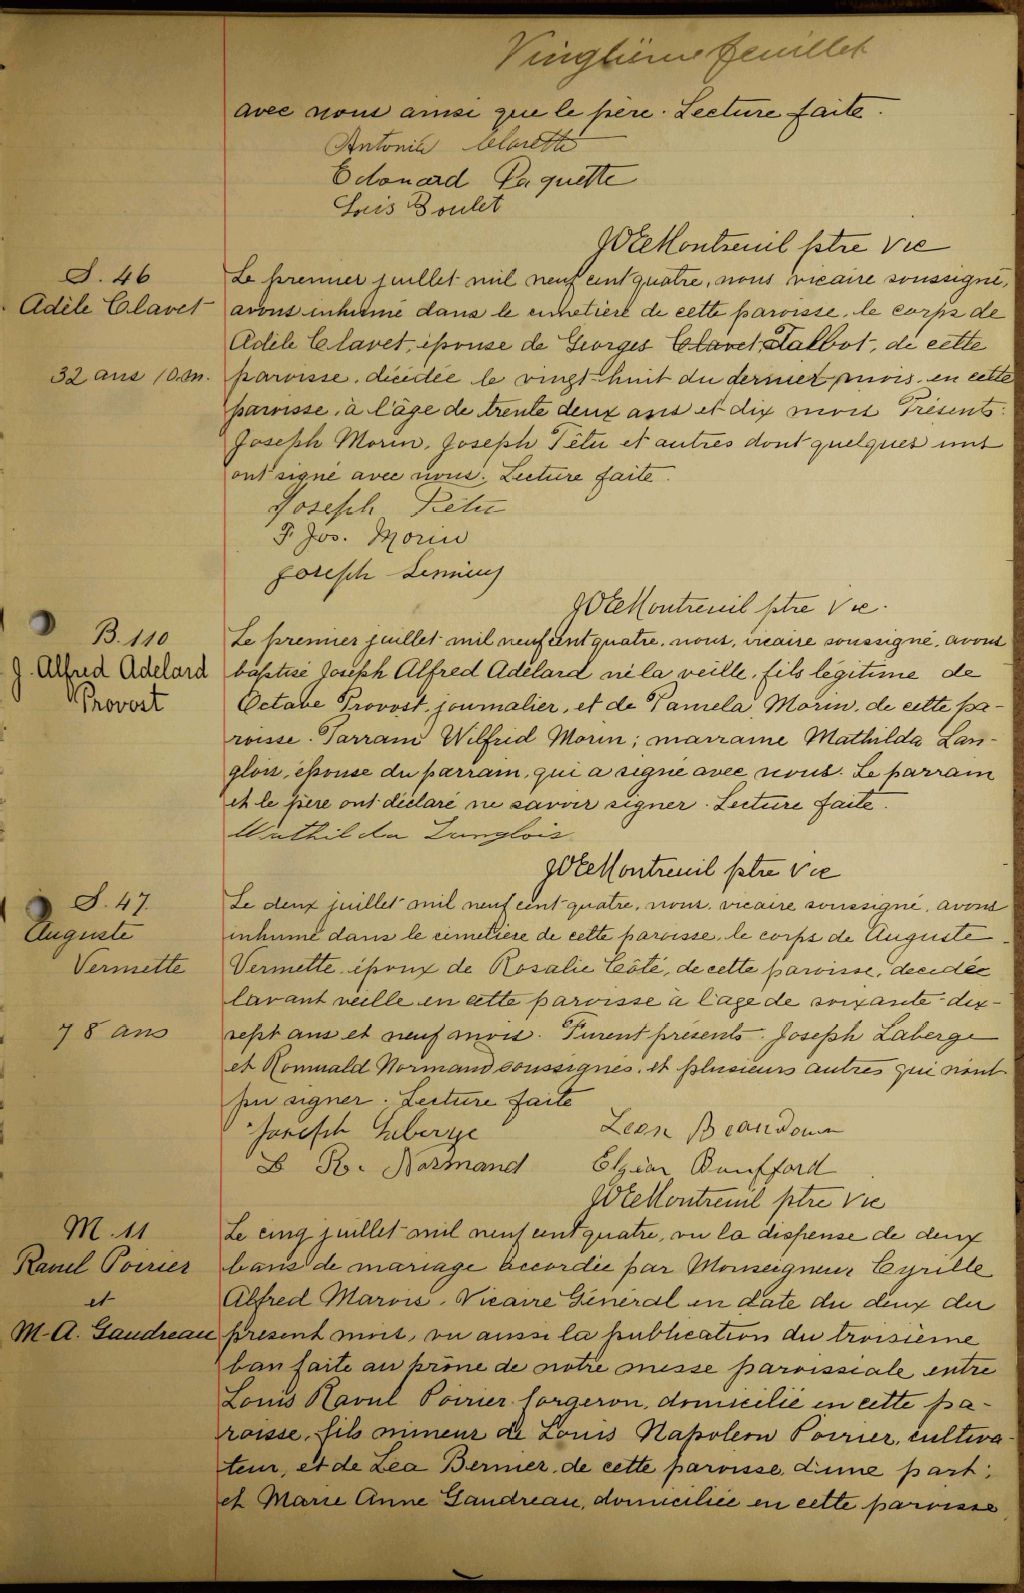 Vingtième feuillet
avec nous ainsi que le père. Lecture faite.
Antonia
Edouard Paquette
Louis Boulet
JOEMontreuil ptre Vic
S. 46
Adèle Clavet
32 ans 10 m.
Le premier juillet mil neuf cent quatre, nous vicaire soussigné,
avons inhumé dans le cimetière de cette paroisse, le corps de
Adèle Clavet, épouse de Georges Clavet, Talbot, de cette
paroisse, décédée le vingt-huit du dernier mois, en cette
paroisse, à l'âge de trente deux ans et dix mois Présents:
Joseph Morin, Joseph Têtu et autres dont quelques uns
ont signé avec nous. Lecture faite.
Joseph Têtu
F. Jos. Morin
Joseph
JOEMontreuil ptre Vic.
B. 110
J. Alfred Adélard
Provost
Le premier juillet mil neuf cent quatre, nous, vicaire soussigné, avons
baptisé Joseph Alfred Adélard né la veille, fils légitime de
Octave Provost, journalier, et de Pamela Morin, de cette pa-
roisse. Parrain Wilfrid Morin; marraine Mathilda Lan-
glois, épouse du parrain, qui a signé avec nous. Le parrain
et le père ont déclaré ne savoir signer. Lecture faite.
Mathilda Langlois
JOEMontreuil ptre Vic
S. 47.
Auguste
Vermette
78 ans
Le deux juillet mil neuf cent quatre, nous, vicaire soussigné, avons
inhumé dans le cimetière de cette paroisse, le corps de Auguste
Vermette, époux de Rosalie Côté, de cette paroisse, decedée
l'avant veille en cette paroisse à l'age de soixante-dix-
sept ans et neuf mois. Furent présents. Joseph Laberge
et Romuald Normand soussignés, et plusieurs autres qui n'ont
pu signer. Lecture faite
Joseph Laberge Leon Beaudoin
L R. Normand Elzéar Boufford
JOEMontreuil ptre Vic
M. 11
Raoul Poirier
et
M-A. Gaudreau
Le cinq juillet mil neuf cent quatre, vu la dispense de deux
bans de mariage accordée par Monseigneur Cyrille
Alfred Marois, Vicaire Général en date du deux du
present mois, vu aussi la publication du troisième
ban faite au prône de notre messe paroissiale entre
Louis Raoul Poirier forgeron, domicilié en cette pa-
roisse, fils mineur de Louis Napoléon Poirier, cultiva-
teur, et de Léa Bernier, de cette paroisse, d'une part;
et Marie Anne Gaudreau, domiciliée en cette paroisse,